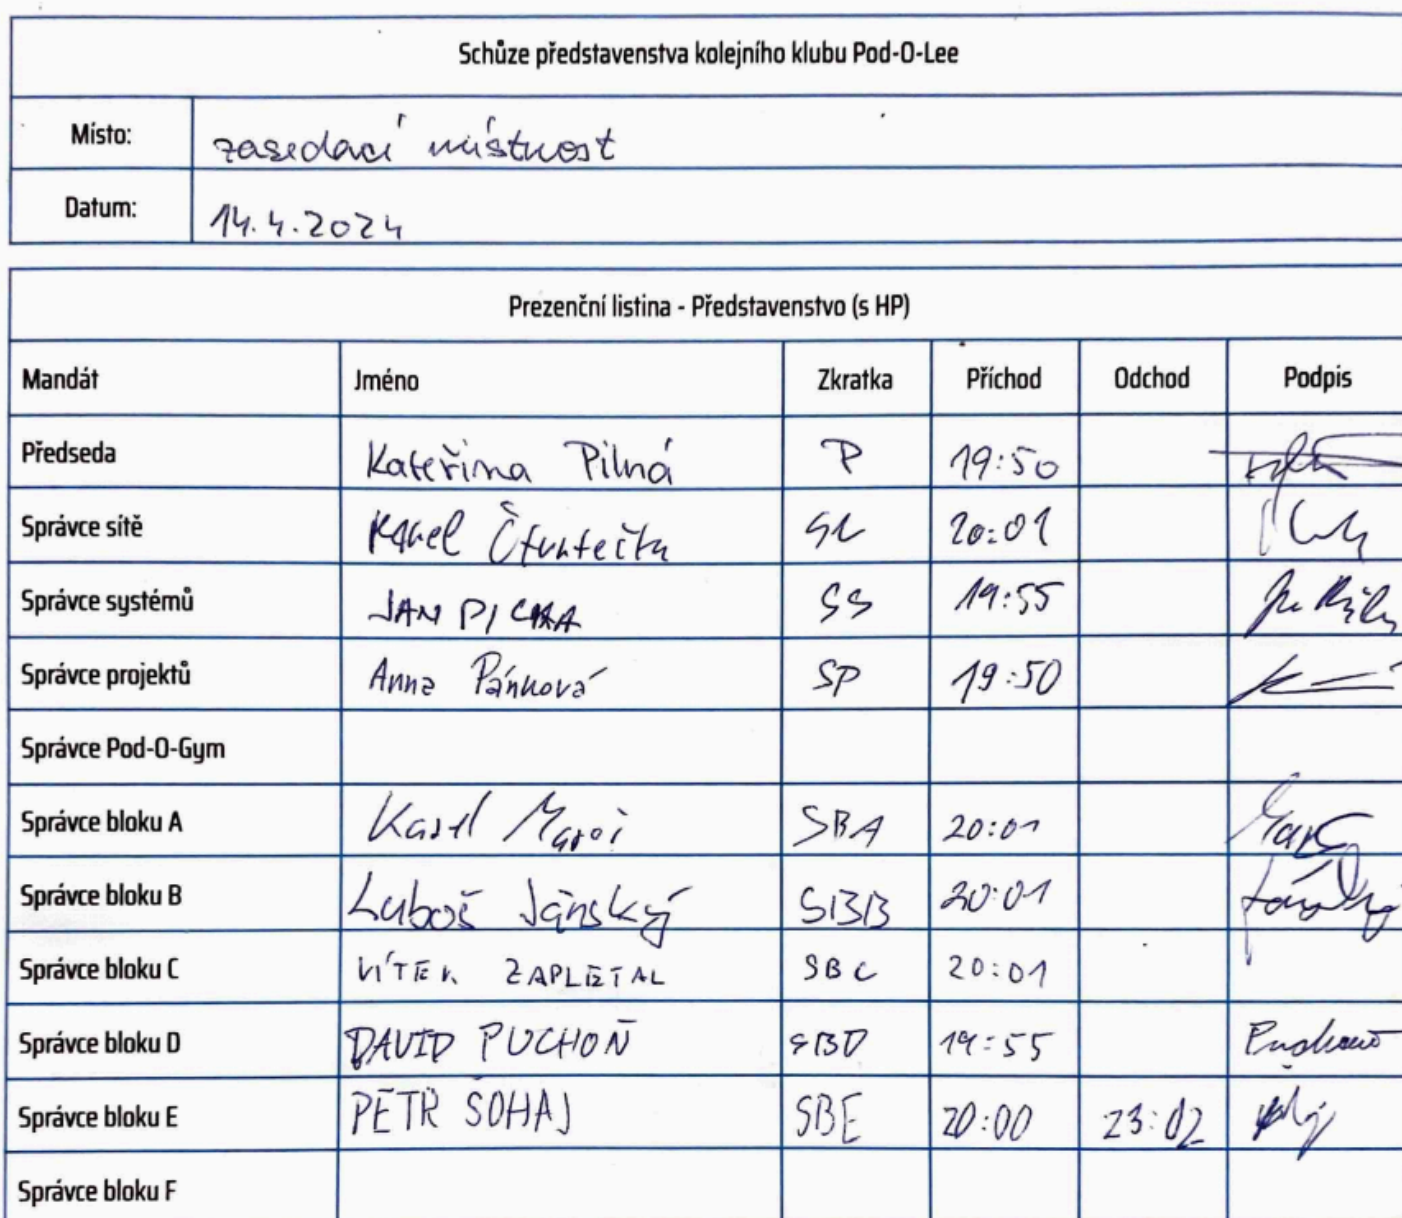 Schůze představenstva kolejního klubu Pod-O-Lee
Místo: zasedací místnost
Datum: 14.4.2024
Prezenční listina - Představenstvo (s HP)
Mandát Jméno Zkratka Příchod Odchod Podpis
Předseda Kateřina Pilná P 19:50
Správce sítě Karel 20:01
Správce systémů JAN SS 19:55
Správce projektů Anna Pánková SP 19:50
Správce Pod-O-Gym
Správce bloku A Karel SBA 20:01
Správce bloku B Luboš Jánský SBB 20:01
Správce bloku C VÍTEK ZAPLETAL SBC 20:01
Správce bloku D DAVID PUCHOŇ SBD 19:55
Správce bloku E PETR ŠOHAJ SBE 20:00 23:02
Správce bloku F